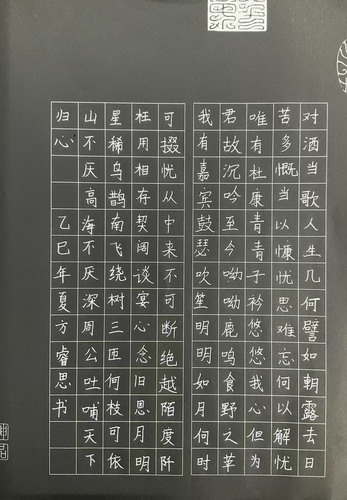 对酒当歌人生几何譬如朝露去日
苦多慨当以慷忧思难忘何以解忧
唯有杜康青青子衿悠悠我心但为
君故沉吟至今呦呦鹿鸣食野之苹
我有嘉宾鼓瑟吹笙明明如月何时
可掇忧从中来不可断绝越陌度阡
枉用相存契阔谈宴心念旧恩月明
星稀乌鹊南飞绕树三匝何枝可依
山不厌高海不厌深周公吐哺天下
归心 乙巳年夏方睿思书